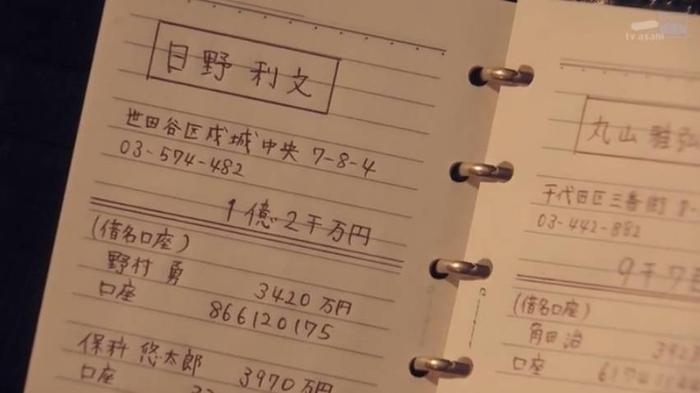 日野 利文
世田谷区成城中央 7-8-4
03-574-482
1億2千万円
(借名口座)
野村 勇 3420万円
口座 866120175
保科 悠太郎 3970万円
口座
丸山 雅弘
千代田区三番町 8-
03-442-882
9千7
(借名口座)
角田 治
口座
tv asahi